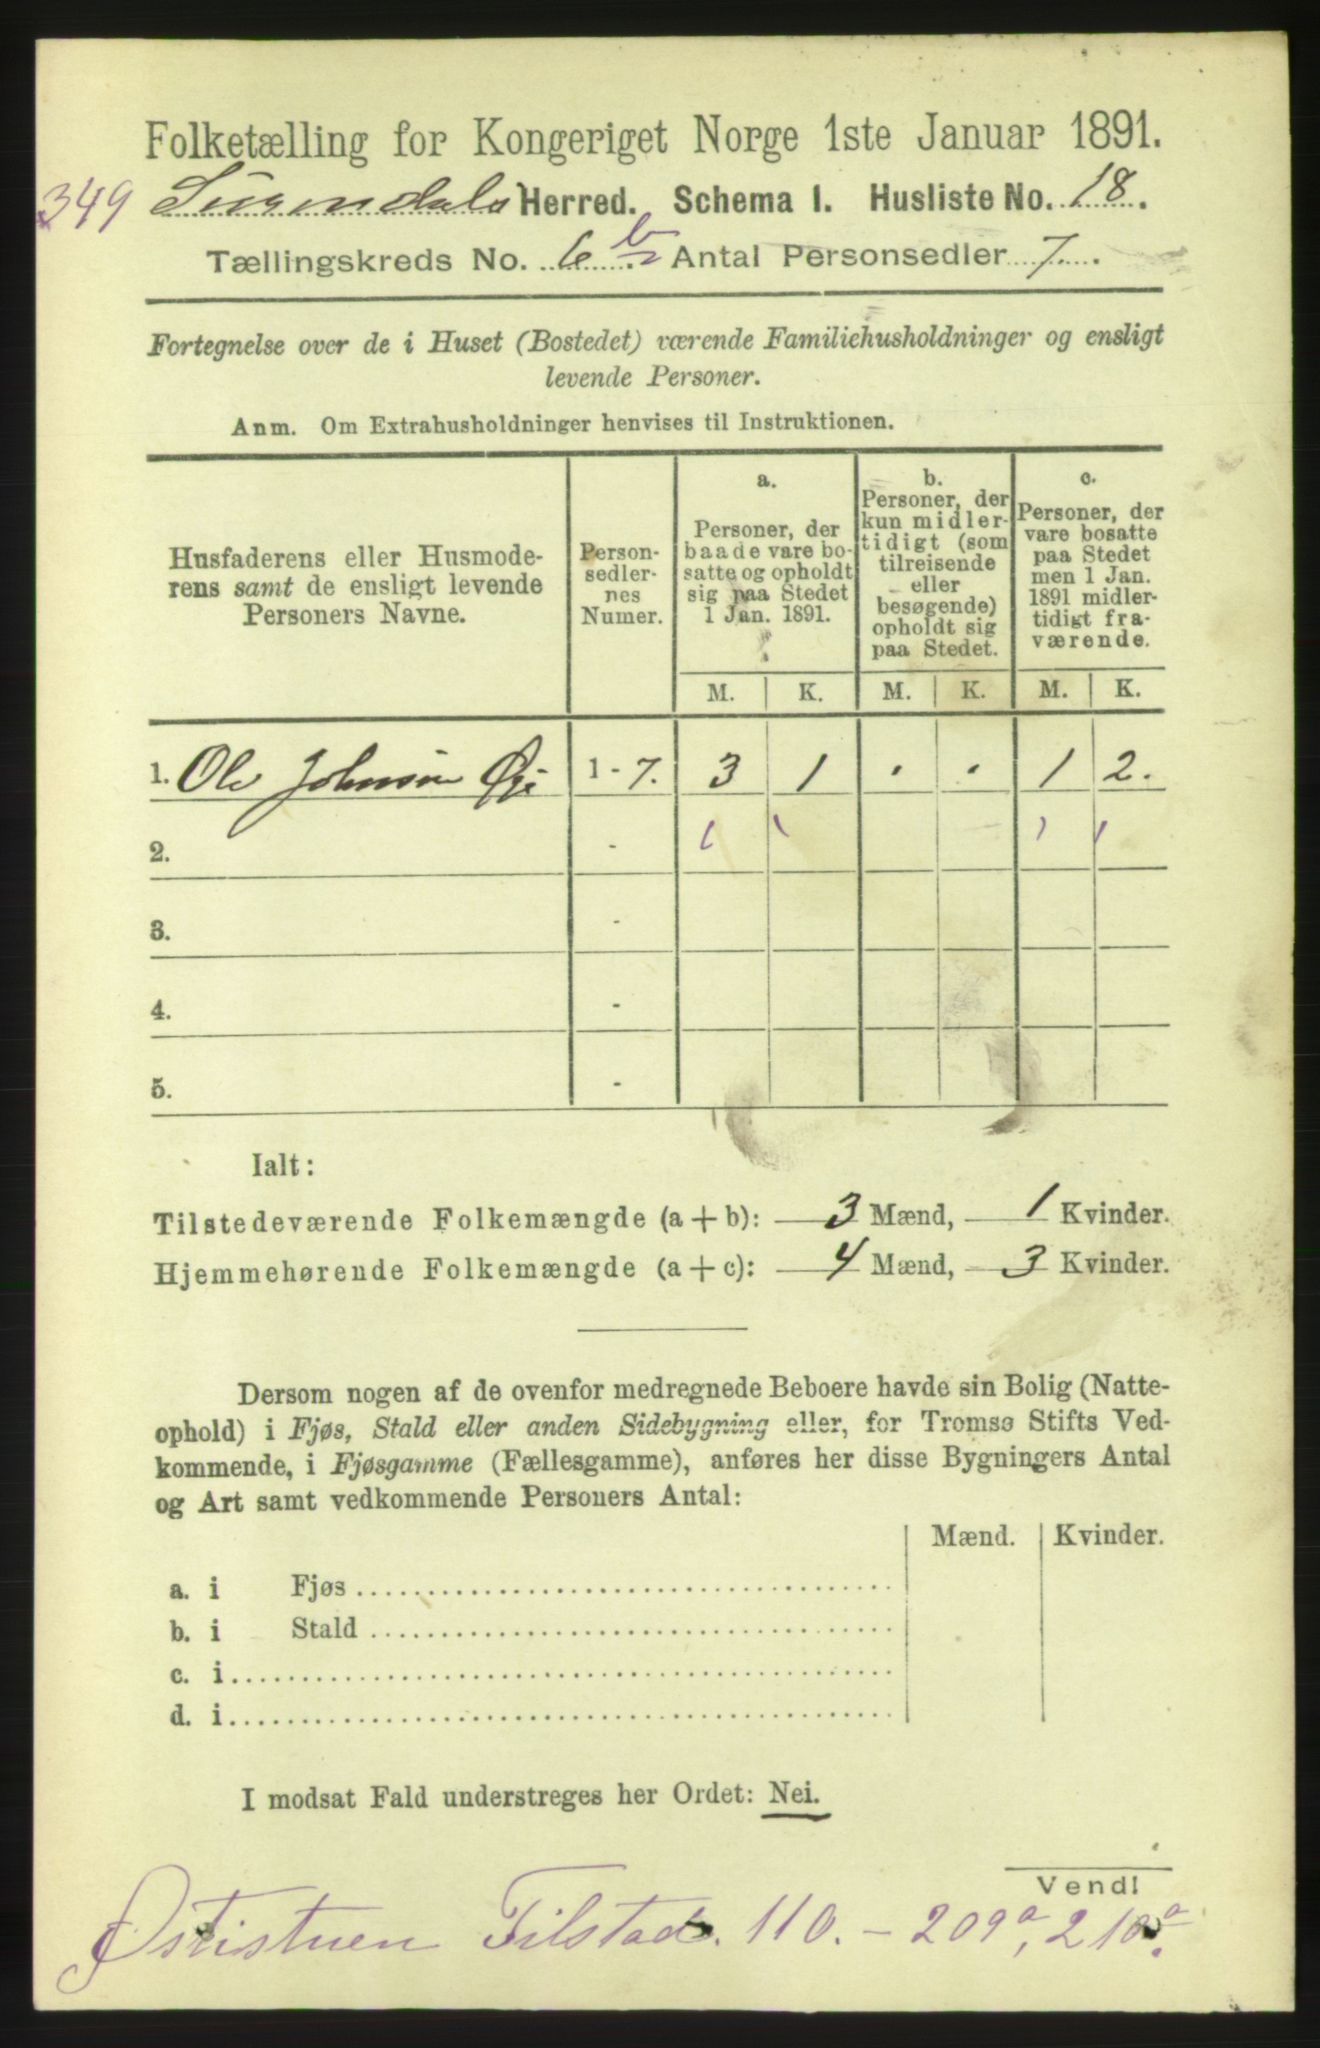 Folketælling for Kongeriget Norge 1ste Januar 1891.
349 Surendals Herred. Schema I. Husliste No. 18.
Tællingskreds No. 6 b. Antal Personsedler 7.
Fortegnelse over de i Huset (Bostedet) værende Familiehusholdninger og ensligt
levende Personer.
Anm. Om Extrahusholdninger henvises til Instruktionen.
Husfaderens eller Husmode-
rens samt de ensligt levende
Personers Navne.
Person-
sedler-
nes
Numer.
a.
Personer, der
baade vare bo-
satte og opholdt
sig paa Stedet
1 Jan. 1891.
b.
Personer, der
kun midler-
tidigt (som
tilreisende
eller
besøgende)
opholdt sig
paa Stedet.
c.
Personer, der
vare bosatte
paa Stedet
men 1 Jan.
1891 midler-
tidigt fra-
værende.
M. K. M. K. M. K.
1. Ole Johnsen Øie 1 - 7. 3 1 . . 1 2.
2. - 1 1 1 1
3. -
4. -
5. -
Ialt:
Tilstedeværende Folkemængde (a + b): 3 Mænd, 1 Kvinder.
Hjemmehørende Folkemængde (a + c): 4 Mænd, 3 Kvinder.
Dersom nogen af de ovenfor medregnede Beboere havde sin Bolig (Natte-
ophold) i Fjøs, Stald eller anden Sidebygning eller, for Tromsø Stifts Ved-
kommende, i Fjøsgamme (Fællesgamme), anføres her disse Bygningers Antal
og Art samt vedkommende Personers Antal:
Mænd. Kvinder.
a. i Fjøs
b. i Stald
c. i
d. i
I modsat Fald understreges her Ordet: Nei.
Vend!
Østistuen Tilstad. 110. - 209a, 210a.